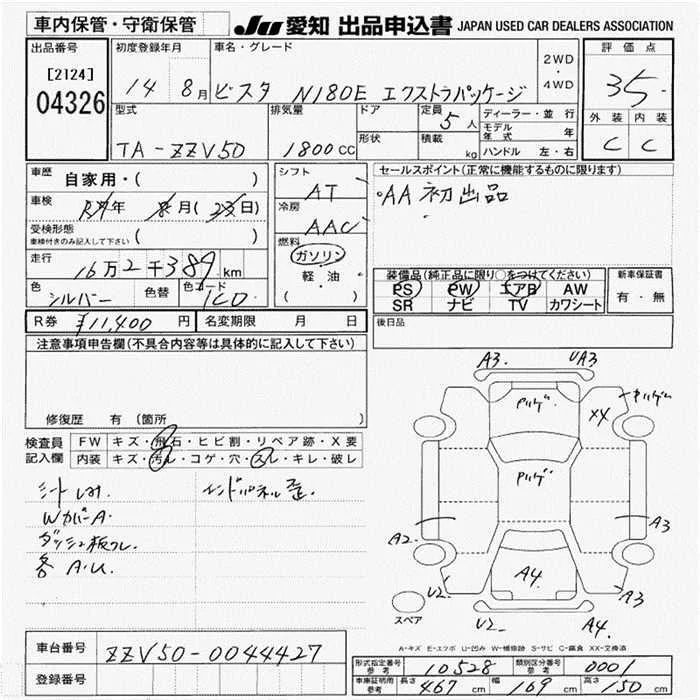 車内保管・守衛保管
JU 愛知 出品申込書 JAPAN USED CAR DEALERS ASSOCIATION
出品番号
[2124]
04326
初度登録年月
14 8月
車名・グレード
ビスタ N180E エクストラパッケージ
2WD
・
4WD
評価点
3.5
外装 内装
C C
型式
TA-ZZV50
排気量
1800CC
ドア
形状
定員
5人
積載
kg
ディーラー・並行
モデル年式 年
ハンドル 左・右
車歴 自家用・( )
車検 年 月( 日)
受検形態
車検付きのみ記入して下さい ( )
走行 16万2千389km
色 シルバー 色替 色コード 1C0
シフト AT
冷房 AAC
燃料
ガソリン
軽・油
( )
セールスポイント(正常に機能するものに限ります)
・AA初出品
装備品(純正品に限り○をつけてください)
PS PW エアB AW
SR ナビ TV カワシート
新車保証書
有・無
R券 ¥11,400円 名変期限 月 日
後日品
注意事項申告欄(不具合内容等は具体的に記入して下さい)
修復歴 有(箇所 )
検査員記入欄
FW キズ・飛石・ヒビ割・リペア跡・X要
内装 キズ・汚レ・コゲ・穴・スレ・キレ・破レ
Wカバー A.
各 A.U.
エンドパネル歪.
A3. UA3
XX
A2. A3
A4
U2. A3
U2. A4.
スペア
A-キズ E-エクボ U-凹み W-補修跡 S-サビ C-腐食 XX-交換済
車台番号 ZZV50-0044427
登録番号
形式指定番号 参考 10528 類別区分番号 参考 0001
車庫証明用 参考 長さ 467cm 幅 169cm 高さ 150cm